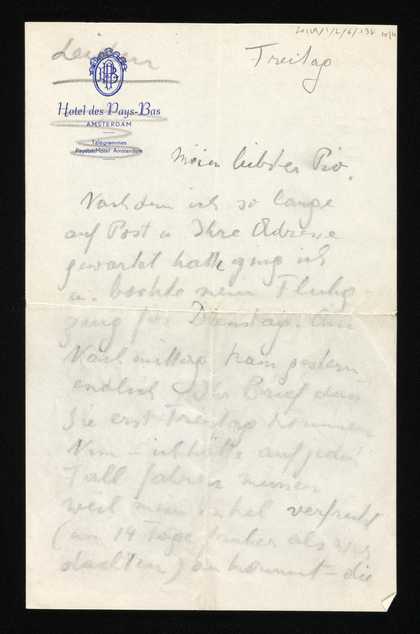 Leiden
Freitag
Hotel des Pays-Bas
AMSTERDAM
Telegrammes
Paysbashotel Amsterdam
Mein liebster Pio,
Nachdem ich so lange
auf Post u Ihre Adresse
gewartet hatte ging ich
u. buchte mein Flug
für Dienstag. Am
Nachmittag kam gestern
endlich Ihr Brief dass
Sie erst Freitag kommen
Nun - ich hätte auf jeden
Fall fahren müssen
weil mein Enkel verfrüht
(um 14 Tage früher als wir
dachten) ankommt - die